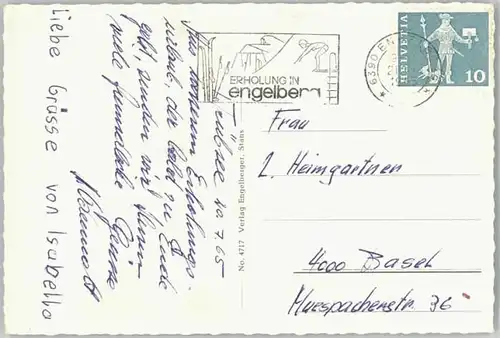 Liebe Grüsse von Isabella
Trübsee 20.7.65
Aus unserem Erholungs-
urlaub, der bald zu Ende
geht, senden wir Ihnen
viele freundliche Grüsse
ERHOLUNG IN
engelberg
6390 EN
HELVETIA
10
No. 4717 Verlag Engelberger, Stans
Frau
L. Heimgartner
4000 Basel
Muespacherstr. 36